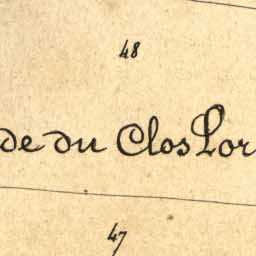 48
de du Clos Lor
47